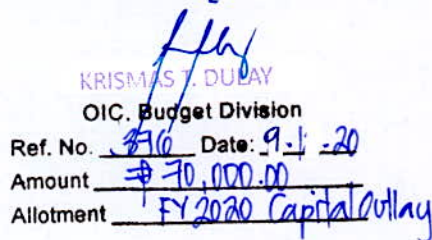 KRISMAS T. DULAY
OIC, Budget Division
Ref. No. 376 Date: 9.1.20
Amount ₱ 70,000.00
Allotment FY 2020 Capital Outlay